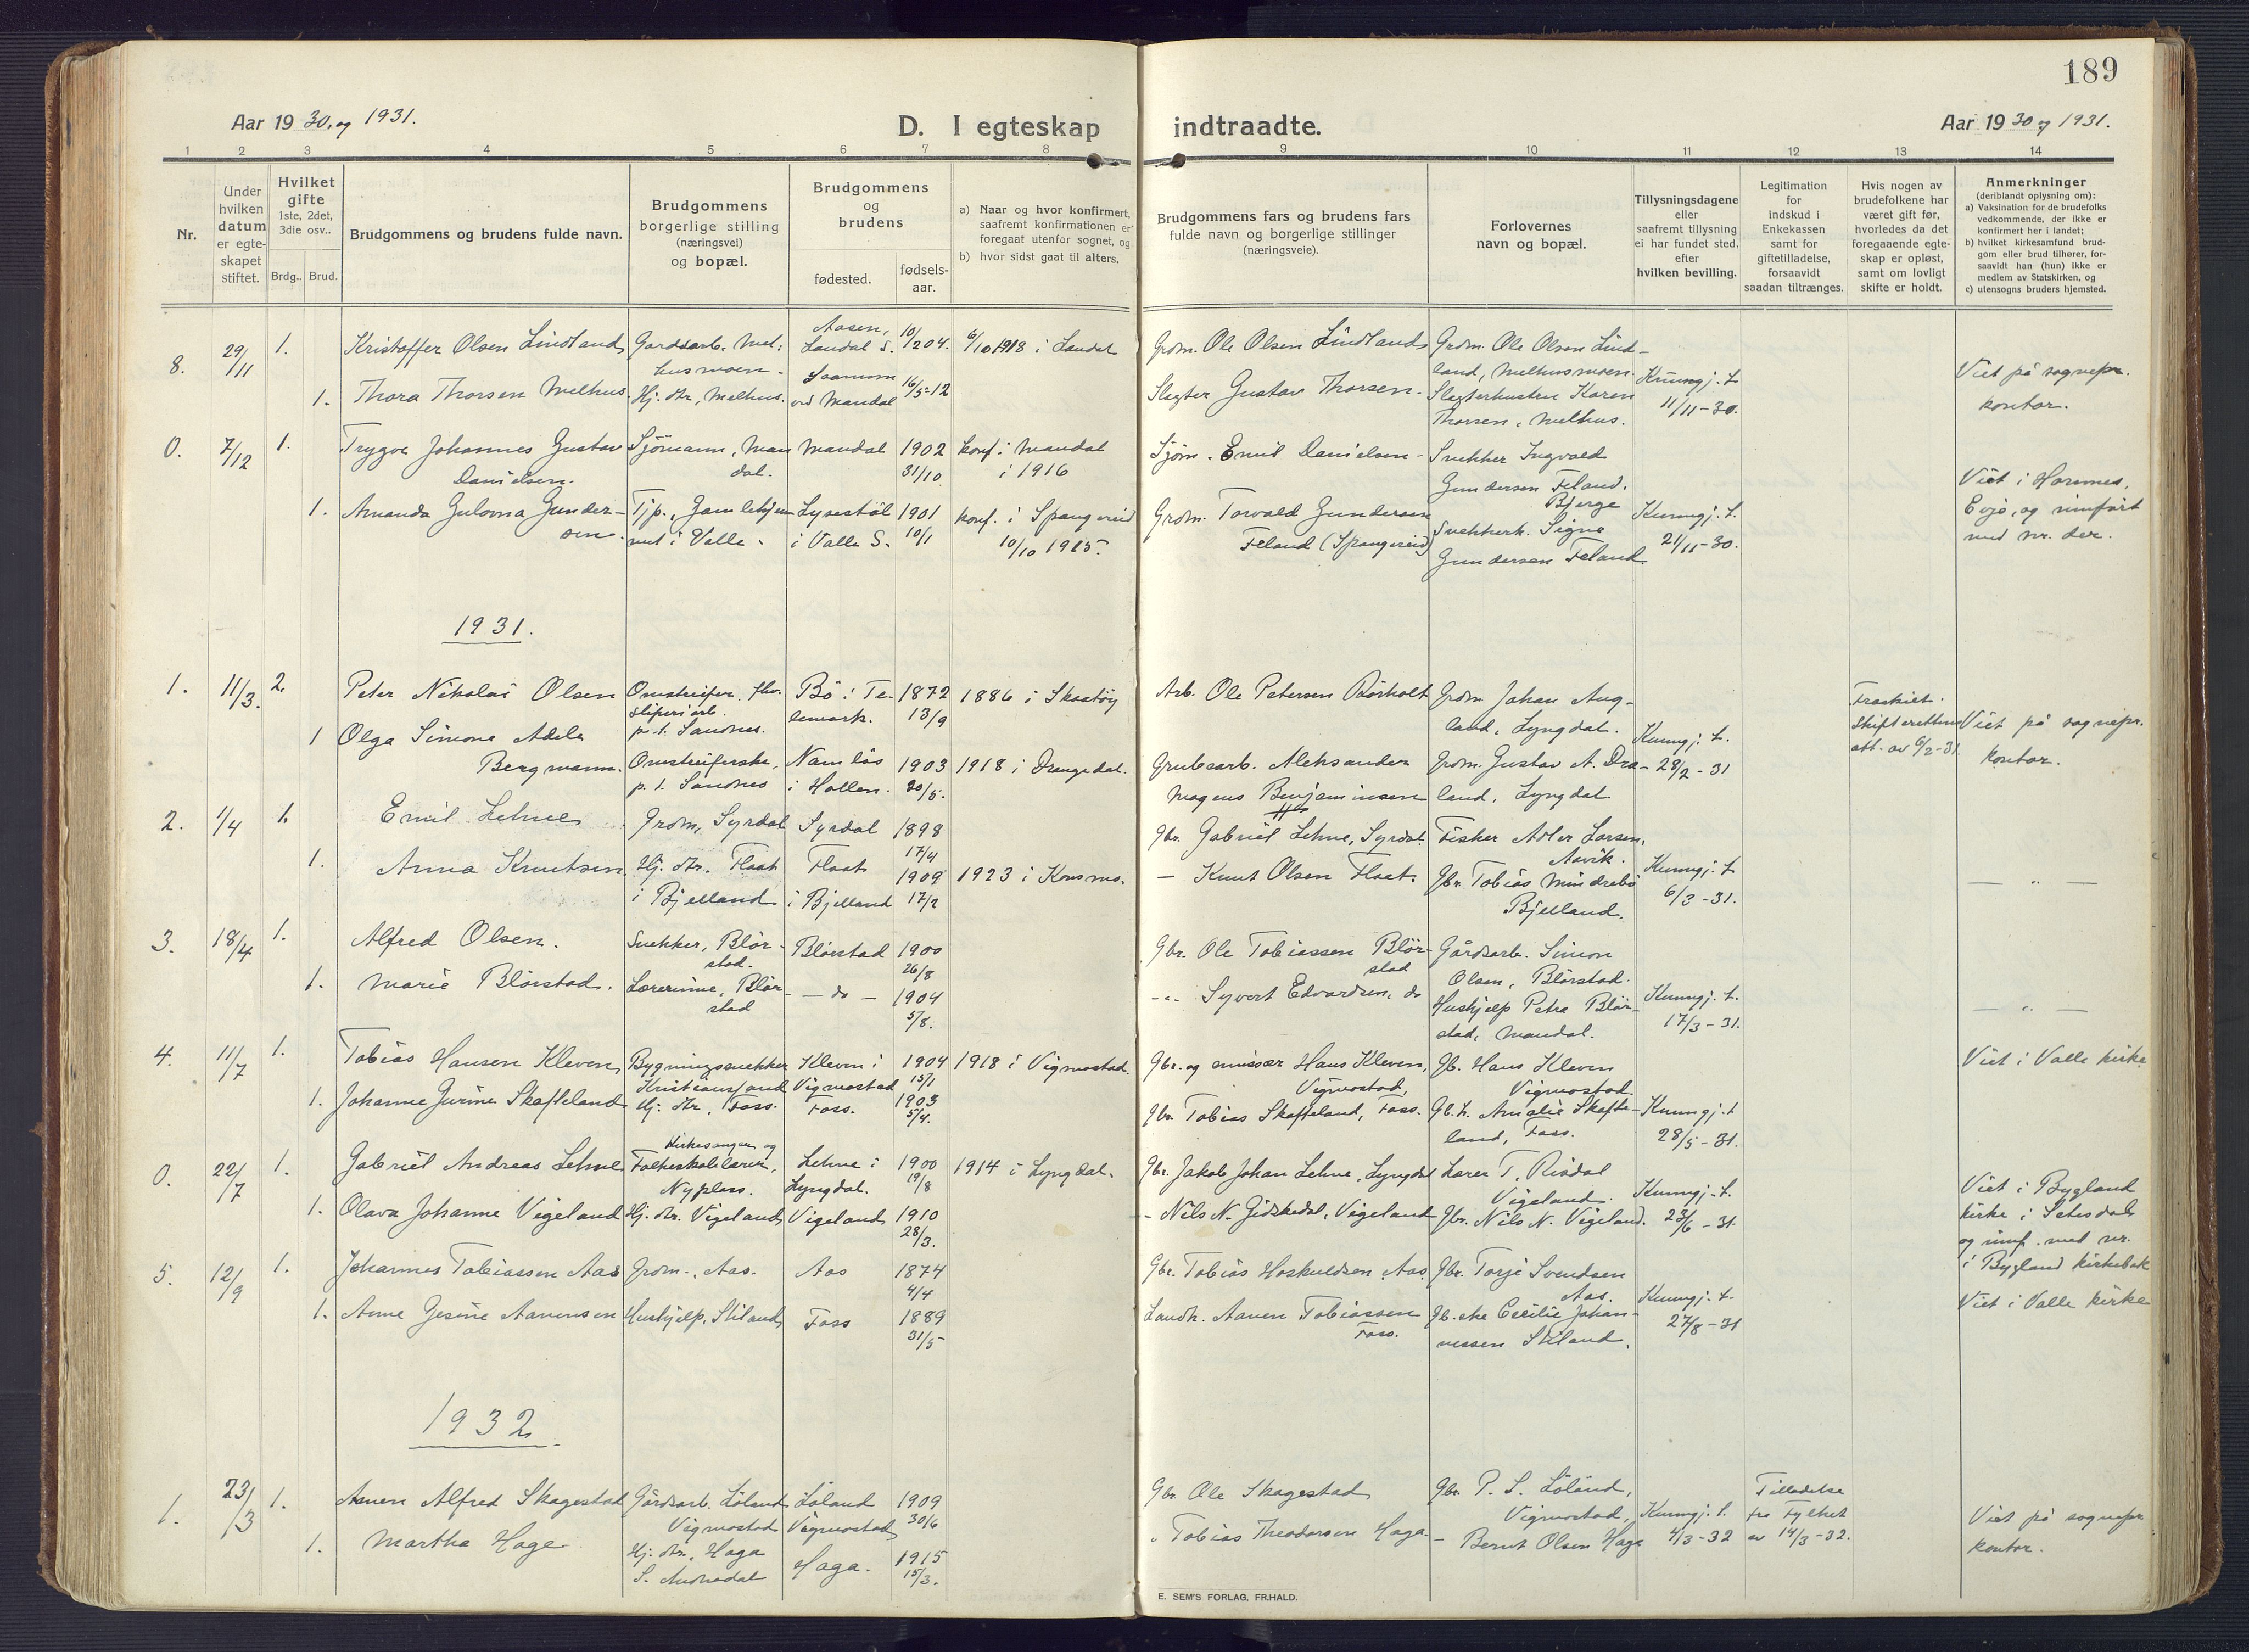 189
Aar 19 30. og 1931.
D. I egteskap indtraadte.
Aar 19 30 og 1931.
1 2 3 4 5 6 7 8 9 10 11 12 13 14
Nr.
Under
hvilken
datum
er egte-
skapet
stiftet.
Hvilket
gifte
1ste, 2det,
3die osv..
Brdg.. Brud.
Brudgommens og brudens fulde navn.
Brudgommens
borgerlige stilling
(næringsvei)
og bopæl.
Brudgommens
og
brudens
fødested.
fødsels-
aar.
a) Naar og hvor konfirmert,
saafremt konfirmationen er
foregaat utenfor sognet, og
b) hvor sidst gaat til alters.
Brudgommens fars og brudens fars
fulde navn og borgerlige stillinger
(næringsveie).
Forlovernes
navn og bopæl.
Tillysningsdagene
eller
saafremt tillysning
ei har fundet sted,
efter
hvilken bevilling.
Legitimation
for
indskud i
Enkekassen
samt for
giftetilladelse,
forsaavidt
saadan tiltrænges.
Hvis nogen av
brudefolkene har
været gift før,
hvorledes da det
foregaaende egte-
skap er opløst,
samt om lovligt
skifte er holdt.
Anmerkninger
(deriblandt oplysning om):
a) Vaksination for de brudefolks
vedkommende, der ikke er
konfirmert her i landet;
b) hvilket kirkesamfund brud-
gom eller brud tilhører, for-
saavidt han (hun) ikke er
medlem av Statskirken, og
c) utensogns bruders hjemsted.
8. 29/11 1.
Kristoffer Olsen Lindland
Gardsarb. Mel-
husmoen.
Aasen,
Laudal S.
10/12 04.
6/10 1918 i Laudal
Grdm. Ole Olsen Lindland
Grdm. Ole Olsen Lind-
land, Melhusmoen.
1. Thora Thorsen Melhus.
Hj. dtr, Melhus.
ved Mandal
16/5-12
Slagter Gustav Thorsen.
Slagterhustru Karen
Thorsen, Melhus.
Kunngj. t.
11/11-30.
Viet på sognepr.
kontor.
0. 7/12 1.
Trygve Johannes Gustav
Danielsen.
Sjømann, Man
dal.
Mandal
1902
31/10
konf. i Mandal
i 1916
Sjøm. Emil Danielsen
Snekker Ingvald
Gundersen Feland.
1. Amanda Gulovna Gunder-
sen.
Tjp., Gamlehjem
met i Valle.
Lysestøl
i Valle S.
1901
10/1
konf. i Spangereid
10/10 1915.
Grdm. Torvald Gundersen
Feland (Spangereid)
Bjerge
Snekkerh. Signe
Gundersen Feland
Kunngj. t.
21/11-30.
Viet i Hornnes,
Evje, og innført
med nr. der.
1931.
1. 11/3. 2.
Peter Nikolai Olsen
Omstreifer, fhv.
sliperiarb.
p.t. Sandnes.
Bø i Te-
lemark.
1872
13/9
1886 i Skaatøy
Arb. Ole Petersen Børholt
Grdm. Johan Aug-
land, Lyngdal.
Fraskilt.
Skifterettens
att. av 6/2-31.
1 Olga Simone Adele
Bergmann.
Omstreiferske,
p.t. Sandnes
Namløs
i Hollen.
1903
20/5.
1918 i Drangedal.
Grubearb. Aleksander
Magnus Benjaminsen
Grdm. Gustav A. Dra-
land, Lyngdal
Kunngj. t.
28/2-31
Viet på sognepr.
kontor.
2. 1/4 1.
Emil Lehne
Grdm, Syrdal
Syrdal
1898
17/4
Gbr. Gabriel Lehne, Syrdal.
Fisker Adler Larsen,
Aavik.
1. Anna Knutsen
Hj. dtr. Flaat
i Bjelland
Flaat
i Bjelland
1909
17/2
1923 i Konsmo.
— Knut Olsen Flaat.
Gbr. Tobias Mindrebø
Bjelland.
Kunngj. t.
6/3-31.
— " —
3. 18/4 1.
Alfred Olsen.
Snekker, Blør-
stad.
Blørstad
1900
26/8
Gbr. Ole Tobiassen Blør-
stad
Gårdsarb. Simon
Olsen, Blørstad.
1. Marie Blørstad.
Lærerinne, Blør
stad
— do —
1904
5/8.
-"- Syvert Edvardsen, do
Hushjelp Petra Blør-
stad, Mandal.
Kunngj. t.
17/3-31.
— " —
4. 11/7 1.
Tobias Hansen Kleven
Bygningssnekker
Kristiansand
Kleven i
Vigmostad
1904
15/1
1918 i Vigmostad.
Gbr. og emissær Hans Kleven,
Vigmostad,
Gb. Hans Kleven
Vigmostad.
Viet i Valle kirke
1. Johanne Jurine Skafteland
Hj. dtr, Foss.
Foss.
1903
5/4.
Gbr. Tobias Skafteland, Foss.
Gb. h. Amalie Skafte-
land, Foss.
Kunngj. t
28/5-31.
0. 22/7 1.
Gabriel Andreas Lehne
Kirkesanger og
Folkeskolelærer,
Nyplass.
Lehne i
Lyngdal.
1900
19/8
1914 i Lyngdal.
Gbr. Jakob Johan Lehne, Lyngdal
Lærer T. Risdal
Vigeland.
1. Olava Johanne Vigeland
Hj. dtr. Vigeland
Vigeland
1910
28/3.
- Nils N. Gidskedal, Vigeland
Gbr. Nils N. Vigeland.
Kunngj. t.
23/6-31.
Viet i Bygland
kirke i Setesdal
og innf. med nr.
i Bygland kirkebok
5. 12/9 1.
Johannes Tobiassen Aas
Grdm., Aas.
Aas
1874
4/4
Gbr. Tobias Hoskuldsen Aas.
Gbr. Torje Svendsen
Aas.
1. Anne Gesine Aanensen
Hushjelp, Stiland
Foss
1889
31/5
Landh. Aanen Tobiassen
Foss.
Gb. eke Cecilie Johan-
nessen Stiland.
Kunngj. t.
27/8-31
Viet i Valle kirke
1932
1. 23/3 1.
Aanen Alfred Skagestad
Gårdsarb. Løland
Vigmostad
Løland
Vigmostad
1909
30/6
Gbr. Ole Skagestad
Gbr. P. S. Løland,
Vigmostad,
1. Martha Haga
Hj. dtr., Haga
S. Audnedal
Haga.
1915
15/3.
" Tobias Theodorsen Haga
- Bernt Olsen Haga
Kunngj. t.
4/3-32
Tilladelse
fra Fylket
av 14/3-32.
Viet på sognepr
kontor.
E. SEM'S FORLAG, FR.HALD.